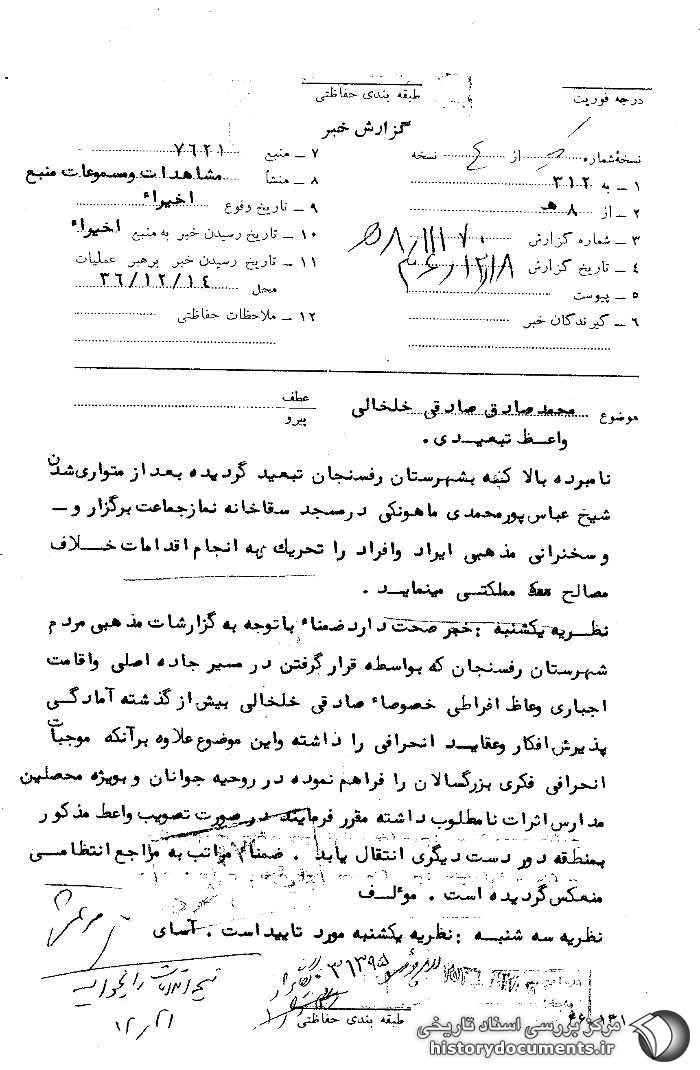 طبقه بندی حفاظتی
درجه فوریت
گزارش خبر
نسخهٔ شماره از ٤ نسخه
۱ ــ به ۳۱۲
۲ ــ از ۸ هـ
۳ ــ شماره گزارش
٤ ــ تاریخ گزارش
٥ ــ پیوست
٦ ــ گیرندگان خبر
۷ ــ منبع ۷٦۲۱
۸ ــ منشأ مشاهدات ومسموعات منبع
۹ ــ تاریخ وقوع اخیراء
۱۰ ــ تاریخ رسیدن خبر به منبع اخیراء
۱۱ ــ تاریخ رسیدن خبر برهبر عملیات
محل ۳٦/۱۲/۱٤
۱۲ ــ ملاحظات حفاظتی
موضوع محمد صادق صادقی خلخالی
واعظ تبعیدی .
عطف
پیرو
نامبرده بالا که بشهرستان رفسنجان تبعید گردیده بعد از متواری شدن
شیخ عباس پورمحمدی ماهونکی در مسجد سقاخانه نماز جماعت برگزار و ــ
و سخنرانی مذهبی ایراد وافراد را تحریک به انجام اقدامات خلاف
مصالح مملکتی مینماید .
نظریه یکشنبه : خبر صحت دارد ضمناء با توجه به گزارشات مذهبی مردم
شهرستان رفسنجان که بواسطه قرار گرفتن در مسیر جاده اصلی واقامت
اجباری وعاظ افراطی خصوصاء صادقی خلخالی بیش از گذشته آمادگی
پذیرش افکار وعقاید انحرافی را داشته واین موضوع علاوه برآنکه موجبات
انحرافی فکری بزرگسالان را فراهم نموده در روحیه جوانان و بویژه محصلین
مدارس اثرات نامطلوب داشته مقرر فرمایند در صورت تصویب واعظ مذکور
بمنطقه دور دست دیگری انتقال یابد . ضمناء مراتب به مراجع انتظامی
منعکس گردیده است . مؤلف
نظریه سه شنبه : نظریه یکشنبه مورد تایید است . آسای
۱۲/۲۱
طبقه بندی حفاظتی
مرکز بررسی اسناد تاریخی
historydocuments.ir